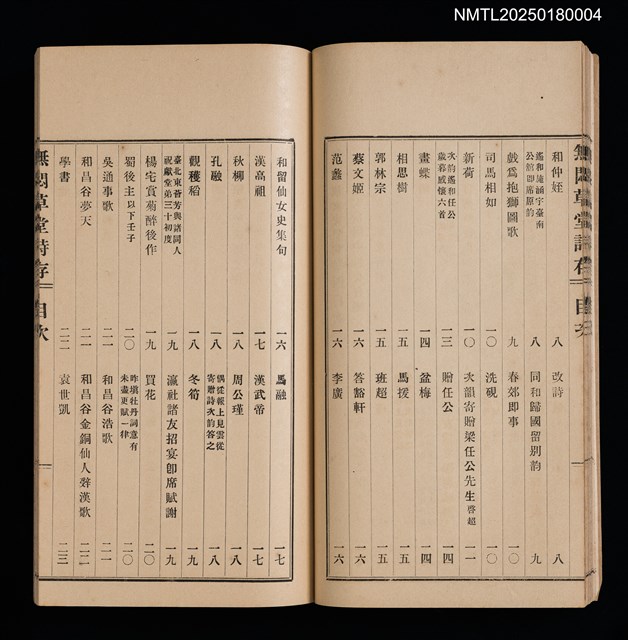 NMTL20250180004
無悶草堂詩存 目次
和仲姪 八 改詩 八
遙和施涵宇臺南公館即席原韵 八 同和歸國留別韵 九
戲爲抱獅圖歌 九 春郊即事 一〇
司馬相如 一〇 洗硯 一〇
新荷 一〇 次韻寄贈梁任公先生啓超 一一
次韵遙和任公歲暮感懷六首 一三 贈任公 一四
畫蝶 一四 盆梅 一四
相思樹 一五 馬援 一五
郭林宗 一五 班超 一五
蔡文姬 一六 答豁軒 一六
范蠡 一六 李廣 一六
和留仙女史集句 一六 馬融 一七
漢高祖 一七 漢武帝 一七
秋柳 一八 周公瑾 一八
孔融 一八 偶從報上見雲從寄贈詩次韵答之 一八
觀穫稻 一八 冬筍 一九
臺北東薈芳與諸同人祝獻堂弟三十初度 一九 瀛社諸友招宴卽席賦謝 一九
楊宅賞菊醉後作 一九 買花 二〇
蜀後主以下壬子 二〇 昨填牡丹詞意有未盡更賦一律 二〇
吳通事歌 二一 和昌谷浩歌 二一
和昌谷夢天 二一 和昌谷金銅仙人辤漢歌 二二
學書 二二 袁世凱 二三
無悶草堂詩存 目次